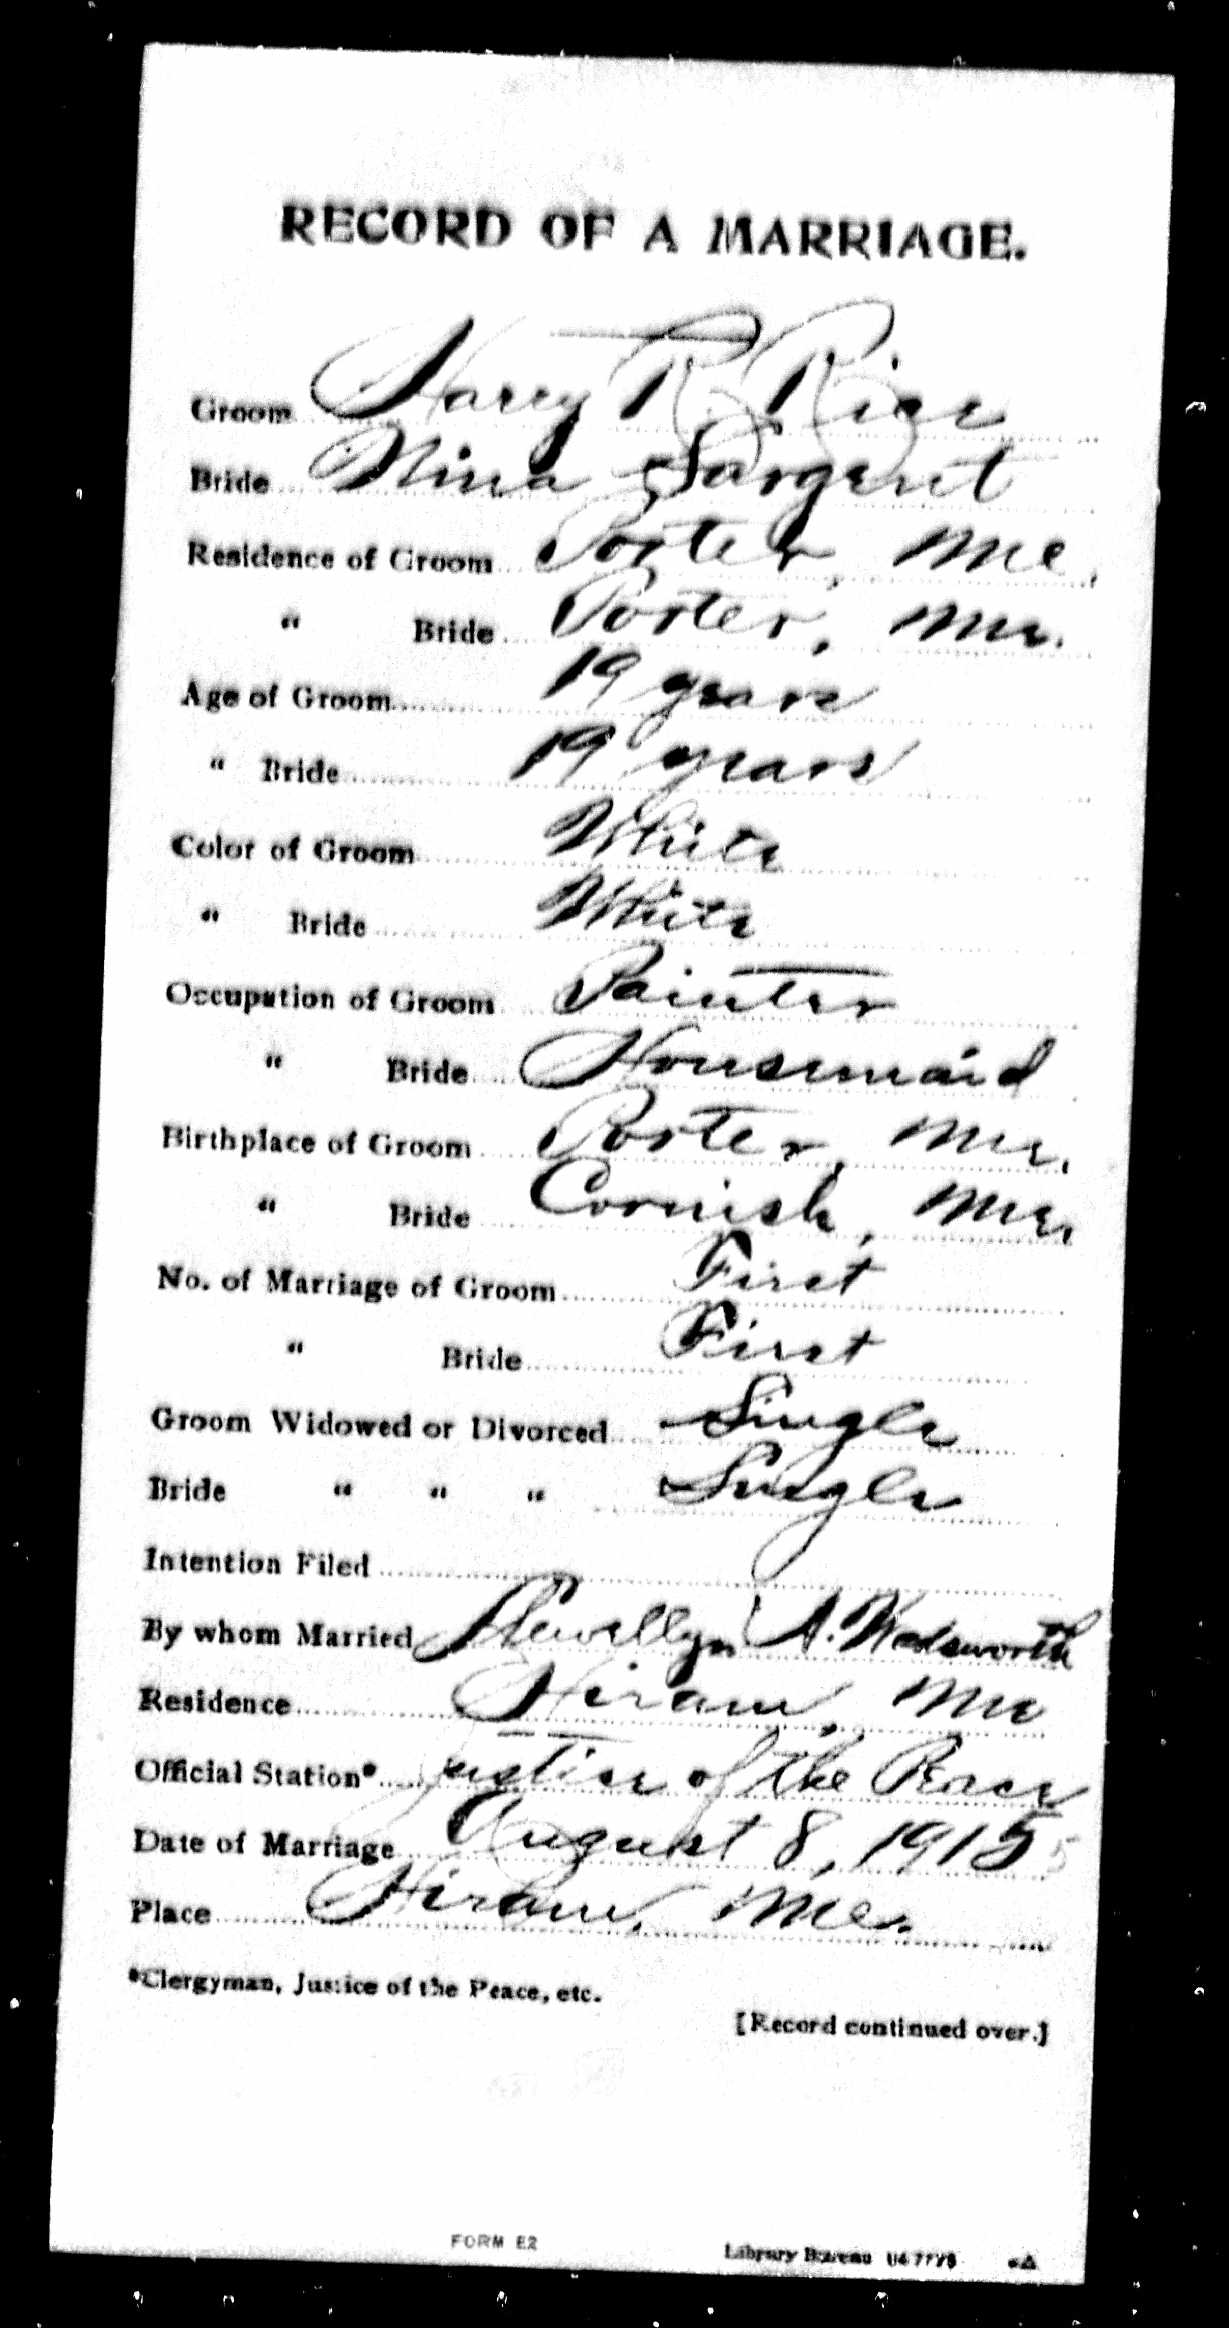 RECORD OF A MARRIAGE.
Groom Harry R. Rice
Bride Nina Sargent
Residence of Groom Porter, Me.
" Bride Porter, Me.
Age of Groom 19 years
" Bride 19 years
Color of Groom White
" Bride White
Occupation of Groom Painter
" Bride Housemaid
Birthplace of Groom Porter, Me.
" Bride Cornish, Me.
No. of Marriage of Groom First
" Bride First
Groom Widowed or Divorced Single
Bride " " " Single
Intention Filed
By whom Married Llewellyn A. Wadsworth
Residence Hiram, Me
Official Station* Justice of the Peace
Date of Marriage August 8, 1915 5
Place Hiram, Me.
*Clergyman, Justice of the Peace, etc.
[Record continued over.]
FORM E2
Library Bureau